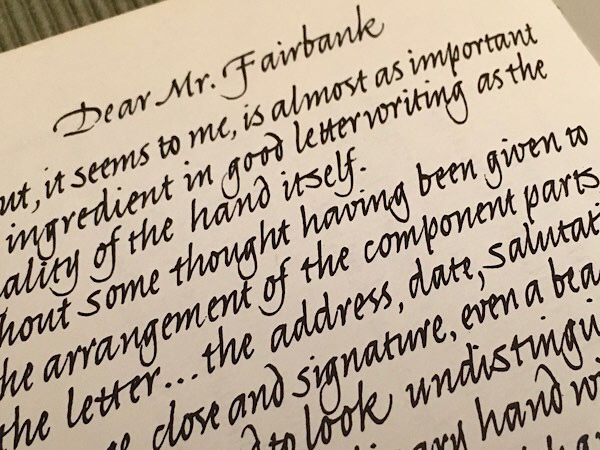 Dear Mr. Fairbank
ut, it seems to me, is almost as important
ingredient in good letterwriting as the
ality of the hand itself.
hout some thought having been given to
he arrangement of the component parts
the letter... the address, date, salutat
close and signature, even a bea
to look undistingui
hand w